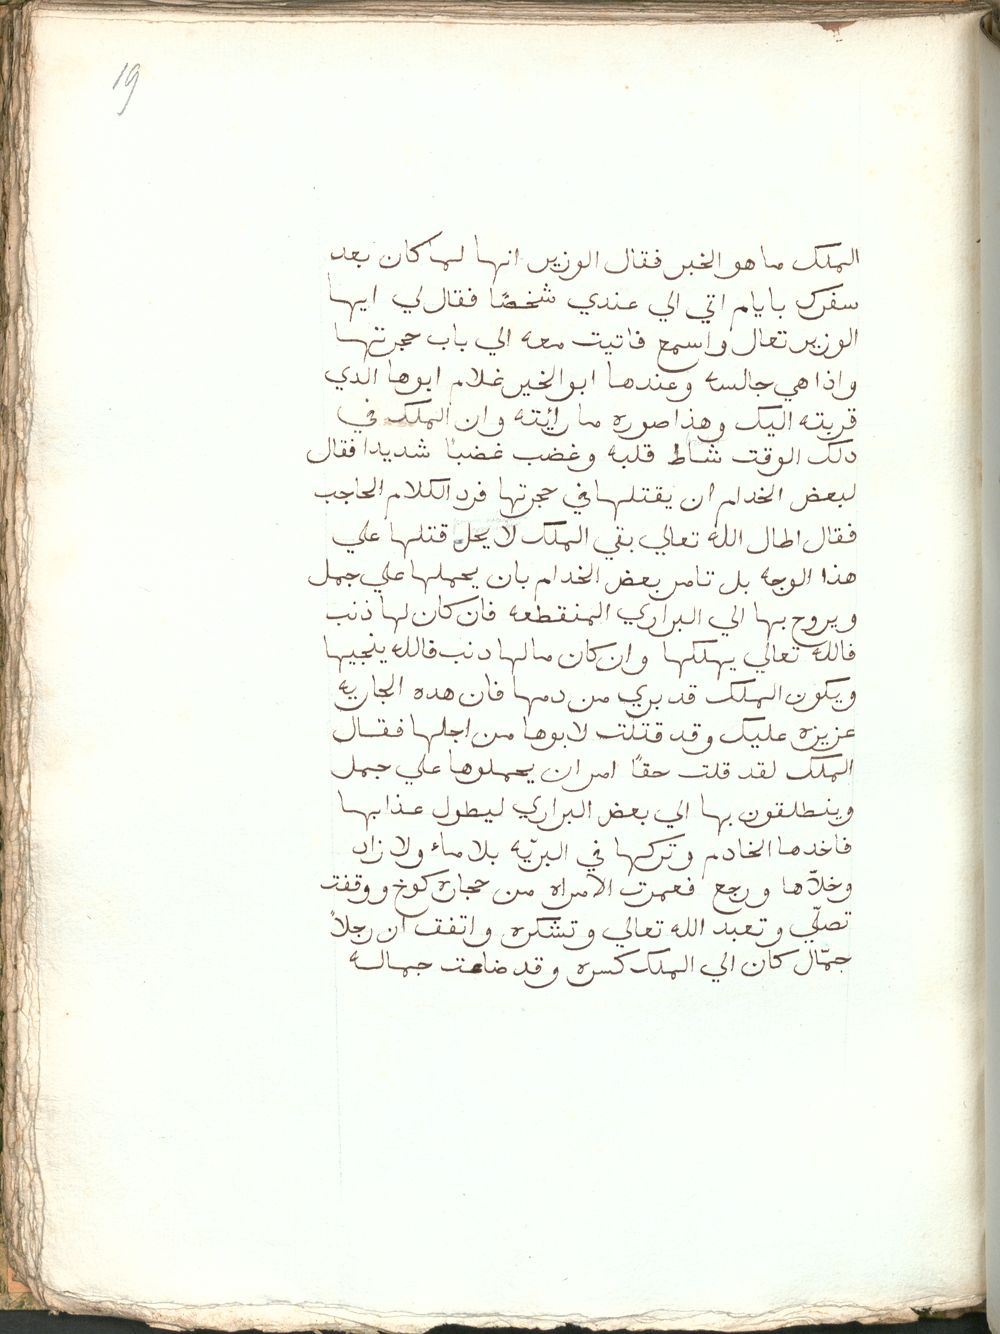 19
الملك ما هو الخبر فقال الوزير انها لما كان بعد
سفرك بايام اتي الي عندي شخصًا فقال لي ايها
الوزير تعال واسمع فاتيت معه الي باب حجرتها
واذا هي جالسه وعندها ابو الخير غلام ابوها الدي
قربته اليك وهذا صوره ما رائته وان الملك في
دلك الوقت شاط قلبه وغضب غضبًا شديدا فقال
لبعض الخدام ان يقتلها في حجرتها فرد الكلام الحاجب
فقال اطال الله تعالي بقي الملك لا يحل قتلها علي
هذا الوجه بل تامر بعض الخدام بان يحملها علي جمل
ويروح بها الي البراري المنقطعه فان كان لها ذنب
فالله تعالي يهلكها وان كان مالها دنب فالله ينجيها
ويكون الملك قد بري من دمها فان هده الجاريه
عزيزه عليك وقد قتلت لابوها من اجلها فقال
الملك لقد قلت حقًا امر ان يحملوها علي جمل
وينطلقون بها الي بعض البراري ليطول عذابها
فاخدها الخادم وتركها في البرّيه بلا ماء ولا زاد
وخلّاها ورجع فعمرت الامراه من حجاره كوخ ووقفت
تصلّي وتعبد الله تعالي وتشكره واتفق ان رجلاً
جمّال كان الي الملك كسره وقد ضاعت جماله